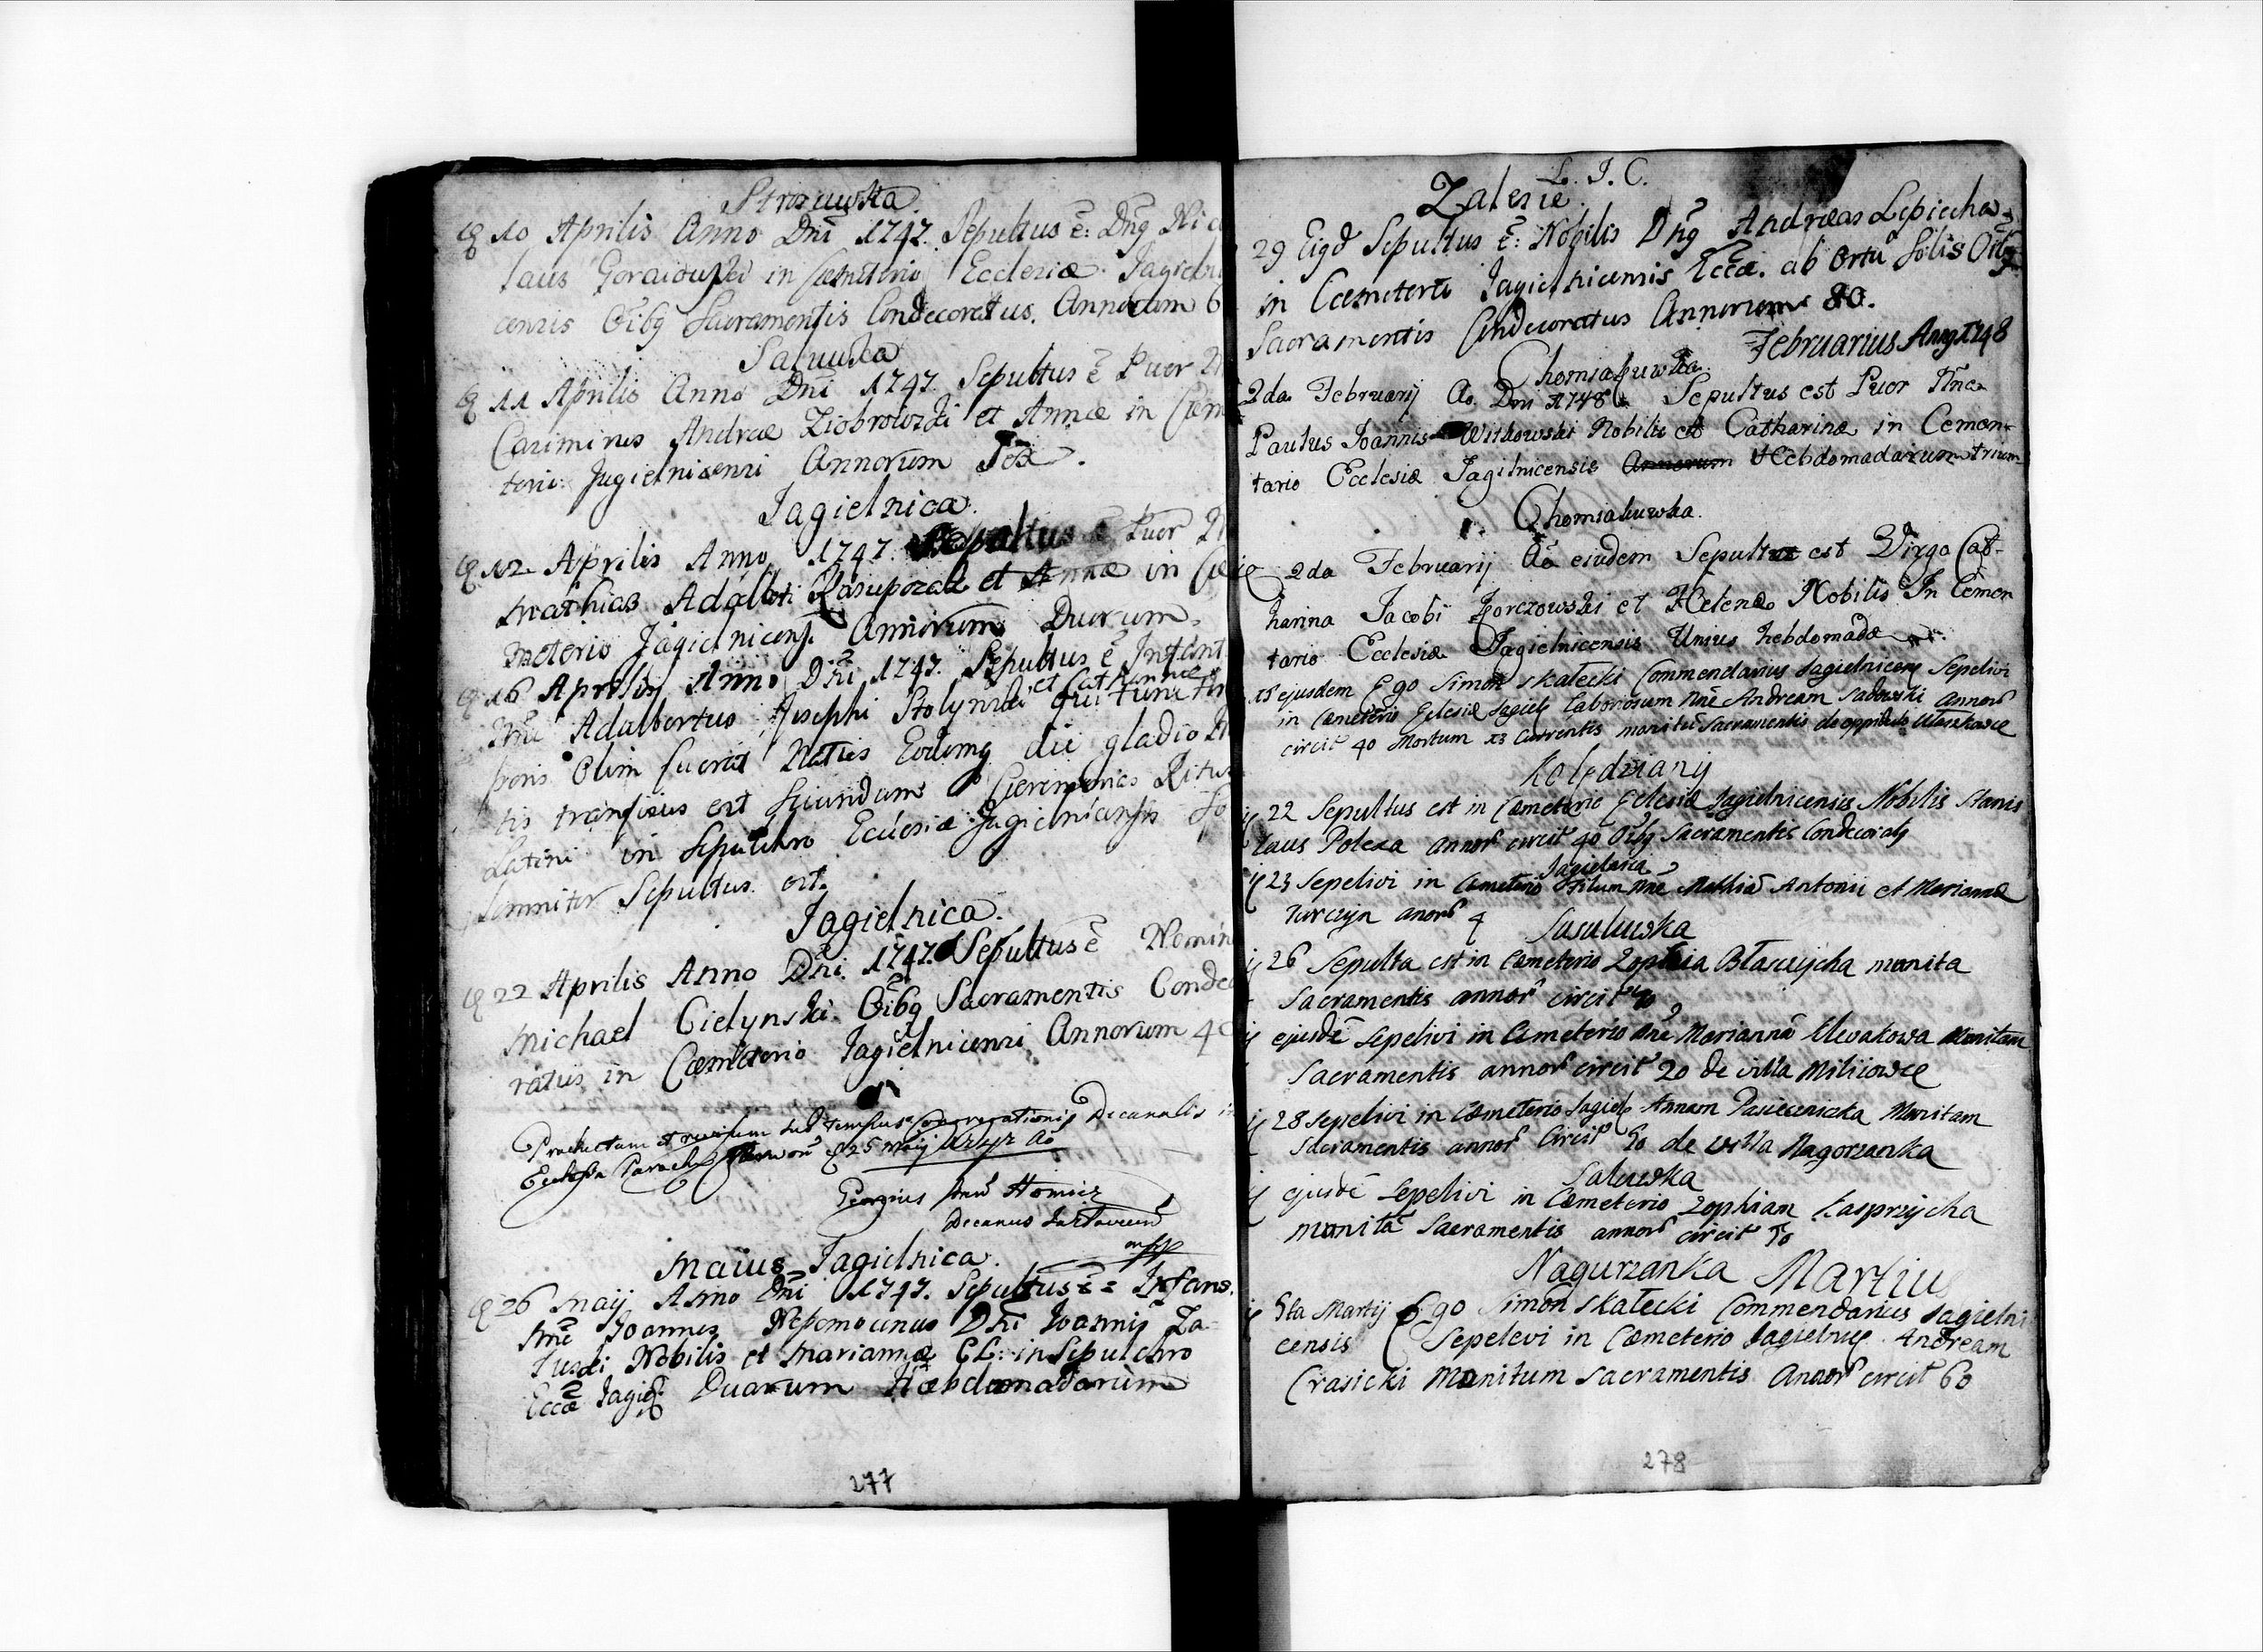 Strzuwka
10 Aprilis Anno Dni 1747. Sepultus ē: Dng Nico
laus in Cæmeterio Ecclesiæ Jagielni
censis Oibg Sacramentis Condecoratus. Annorum 6
Saluwka
11 Aprilis Anno Dni 1747. Sepultus ē Puer
Casimirus Andreæ Ziobrowski et Annæ in Cæm
terio Jagielnicensi Annorum
Jagielnica.
12 Aprilis Anno 1747. Sepultus ē Puer
Mathias Adalberti et Annæ in Cæ
meterio Jagielnicensi Annorum Duorum.
16 Aprilis Anno Dni 1747. Sepultus ē Infant
et Catharinæ
Nnē Adalbertus Josephi Stolynski qui tunc
poris Olim fuerat Natus Eodemg die gladio
tis transfixus est secundum Cæremonias Ritus
Latini in Sepulchro Ecclesiæ Jagielnicensis So
lemniter Sepultus est.
Jagielnica.
22 Aprilis Anno Dni. 1747. Sepultus ē Nomine
Michael Cielynski Oibg Sacramentis Condeco
ratus in Cæmeterio Jagielnicensi Annorum 40
Productum et revisum sub tempus Congregationis Decanalis in
Ecclesia Parochi 25 Maij 1747 Ao
Georgius
Decanus
mpp
Maius Jagielnica.
26 Maij Anno Dni 1747. Sepultus ē Infans.
Nnē Joannes Nepomucenus Dni Joannis Za-
luski Nobilis et Mariannæ CL: in Sepulchro
Eccæ Jagiel Duarum Hæbdomadarum
277
L. J. C.
Zalesie.
29 Eigd Sepultus ē: Nobilis Dng Andreas Lepiecha
in Cæmeterio Jagielnicensis Eccæ. ab Ortu Solis Oibg
Sacramentis Condecoratus Annorum 80.
Februarius Anng 1748
Chomiakuwka.
2da Februarij Ao. Dni 1748 Sepultus est Puer Nnē
Paulus Joannis Witkowski Nobilis et Catharinæ in Cemen-
tario Ecclesiæ Jagilnicensis Annorum Hebdomadarum trium
Chomiakuwka.
2da Februarij Ao ejudem Sepulta est Virgo Cat-
harina Jacobi Zorczowski et Helenæ Nobilis In Cemen
tario Ecclesiæ Jagielnicensis Unius hebdomadæ
15 ejusdem Ego Simon Skałecki Commendarius Jagielnicens Sepelivi
in Cæmeterio Eclesiæ Jagiel Laboriosum Nnē Andream Sadowski annor
circit 40 Mortum 13 Currentis munitū Sacramentis de oppido Ułaszkowce
Kolędziany
22 Sepultus est in Cæmeterio Eclesiæ Jagielnicensis Nobilis Stanis
laus Poleza annor circit 40 Oibg Sacramentis Condecoratg
Jagielnica
23 Sepelivi in Cæmeterio filium Nnē Mathiā Antonii et Mariannæ
Turczyn anor 4
Susuluwka
26 Sepulta est in Cæmeterio Zophia Błaszijcha munita
Sacramentis annor circit
ejusdē Sepelivi in Cæmeterio Nnē Mariannā Klwakowa Munitam
Sacramentis annor circit 20 de villa Miliiowce
28 Sepelivi in Cæmeterio Jagiel Annam Pasiecznicka Munitam
Sacramentis annor circit 50 de villa Nagorzanka
Saluwka
ejusdē Sepelivi in Cæmeterio Zophiam Kasprzijcha
munitā Sacramentis annor circit 50
Nagurzanka Martius
5ta Martij Ego Simon Skałecki Commendarius Jagielni
censis Sepelevi in Cæmeterio Jagielnic Andream
Crasicki Munitum Sacramentis Annor circit 60
278